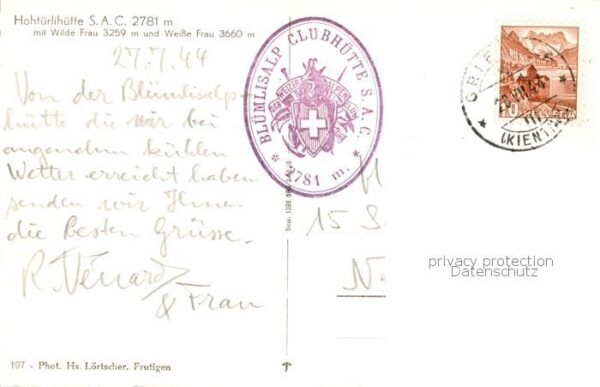 Hohtürlihütte S. A. C. 2781 m
mit Wilde Frau 3259 m und Weiße Frau 3660 m
27.7.44
Von der Blümlisalp-
hütte die wir bei
angenehm kühlem
Wetter erreicht haben
senden wir Ihnen
die besten Grüsse.
R. Vénard
& Frau
197 - Phot. Hs. Lörtscher, Frutigen
BLÜMLISALP CLUBHÜTTE S.A.C.
* 2781 m. *
10
HELVETIA
(KIEN
15 S
N
privacy protection
Datenschutz